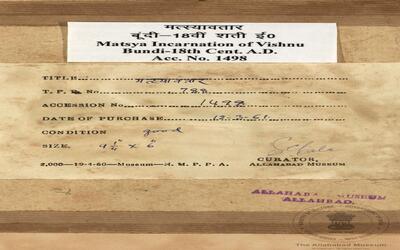 मत्स्यावतार
बूंदी–18वीं शती ई०
Matsya Incarnation of Vishnu
Bundi-18th Cent. A.D.
Acc. No. 1498
TITLE मत्स्यावतार
T. P. No. 788
ACCESSION No. 1498
DATE OF PURCHASE 12-3-61
CONDITION good
SIZE. 9 1/4" x 6"
CURATOR,
2,000—19-4-60—Museum—N. M. P. P. A. ALLAHABAD MUSEUM
ALLAHABAD MUSEUM
ALLAHABAD.
The Allahabad Museum